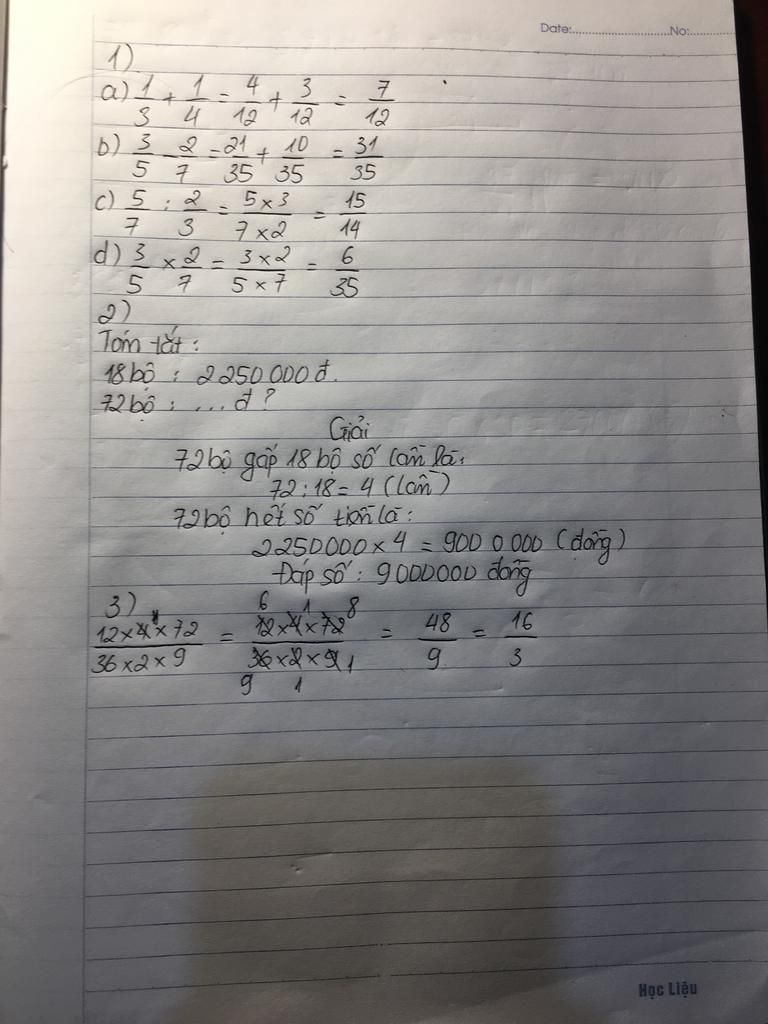 Date:..............................No:..............
1)
a) 1/3 + 1/4 = 4/12 + 3/12 = 7/12
b) 3/5 - 2/7 = 21/35 + 10/35 = 31/35
c) 5/7 : 2/3 = 5 x 3 / 7 x 2 = 15/14
d) 3/5 x 2/7 = 3 x 2 / 5 x 7 = 6/35
2)
Tóm tắt:
18 bộ : 2250 000 đ.
72 bộ : ... đ ?
Giải
72 bộ gấp 18 bộ số lần là:
72 : 18 = 4 (lần)
72 bộ hết số tiền là:
2250000 x 4 = 900 0 000 (đồng)
Đáp số : 9000000 đồng
3)
6 1 8
12 x 4 x 72 / 36 x 2 x 9 = 12 x 4 x 72 / 36 x 2 x 9 1 = 48/9 = 16/3
9 1
Học Liệu